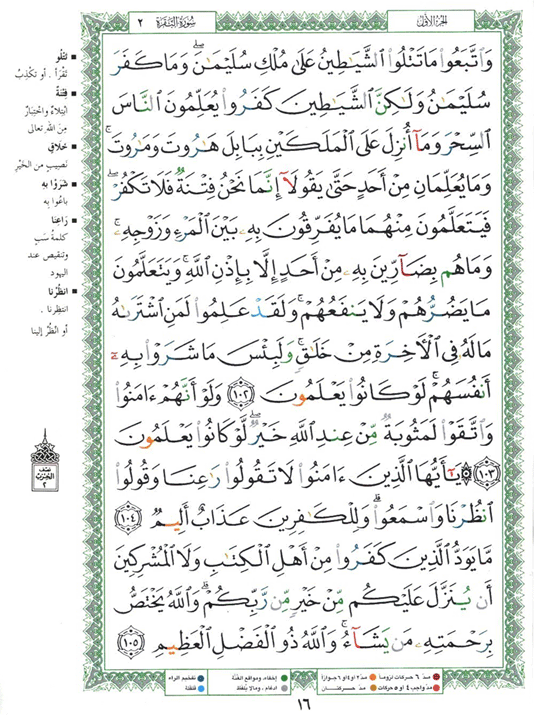 الجزء الأول
سورة البقرة ٢
وَاتَّبَعُوا مَا تَتْلُوا الشَّيَاطِينُ عَلَىٰ مُلْكِ سُلَيْمَانَ ۖ وَمَا كَفَرَ
سُلَيْمَانُ وَلَٰكِنَّ الشَّيَاطِينَ كَفَرُوا يُعَلِّمُونَ النَّاسَ
السِّحْرَ وَمَا أُنزِلَ عَلَى الْمَلَكَيْنِ بِبَابِلَ هَارُوتَ وَمَارُوتَ ۚ
وَمَا يُعَلِّمَانِ مِنْ أَحَدٍ حَتَّىٰ يَقُولَا إِنَّمَا نَحْنُ فِتْنَةٌ فَلَا تَكْفُرْ ۖ
فَيَتَعَلَّمُونَ مِنْهُمَا مَا يُفَرِّقُونَ بِهِ بَيْنَ الْمَرْءِ وَزَوْجِهِ ۚ
وَمَا هُم بِضَارِّينَ بِهِ مِنْ أَحَدٍ إِلَّا بِإِذْنِ اللَّهِ ۚ وَيَتَعَلَّمُونَ
مَا يَضُرُّهُمْ وَلَا يَنفَعُهُمْ ۚ وَلَقَدْ عَلِمُوا لَمَنِ اشْتَرَاهُ
مَا لَهُ فِي الْآخِرَةِ مِنْ خَلَاقٍ ۚ وَلَبِئْسَ مَا شَرَوْا بِهِ
أَنفُسَهُمْ ۚ لَوْ كَانُوا يَعْلَمُونَ ١٠٢ وَلَوْ أَنَّهُمْ ءَامَنُوا
وَاتَّقَوْا لَمَثُوبَةٌ مِّنْ عِندِ اللَّهِ خَيْرٌ ۖ لَّوْ كَانُوا يَعْلَمُونَ
١٠٣ ۞ يَا أَيُّهَا الَّذِينَ ءَامَنُوا لَا تَقُولُوا رَاعِنَا وَقُولُوا
انظُرْنَا وَاسْمَعُوا ۗ وَلِلْكَافِرِينَ عَذَابٌ أَلِيمٌ ١٠٤
مَّا يَوَدُّ الَّذِينَ كَفَرُوا مِنْ أَهْلِ الْكِتَابِ وَلَا الْمُشْرِكِينَ
أَن يُنَزَّلَ عَلَيْكُم مِّنْ خَيْرٍ مِّن رَّبِّكُمْ ۗ وَاللَّهُ يَخْتَصُّ
بِرَحْمَتِهِ مَن يَشَاءُ ۚ وَاللَّهُ ذُو الْفَضْلِ الْعَظِيمِ ١٠٥
تَتْلُو
تَقْرَأُ . أو تَكْذِبُ
فِتْنَةٌ
ابْتِلاءٌ واخْتِبارٌ
مِنَ اللهِ تعالى
خَلَاقٍ
نَصِيبٍ من الخَيْرِ
شَرَوْا بِهِ
باعُوا به
رَاعِنا
كلمةُ سَبٍّ
وتنقيص عند
اليهود
انْظُرْنا
انتظِرنا .
أو انْظُرْ إلينا
نصف
الحزب
٢
مدّ ٦ حركات لزوماً
مدّ ٢ أو ٤ أو ٦ جوازاً
إخفاء، ومواقع الغُنَّة
تفخيم الراء
مدّ واجب ٤ أو ٥ حركات
مدّ حركتان
ادغام، وما لا يُلفظ
قلقلة
١٦